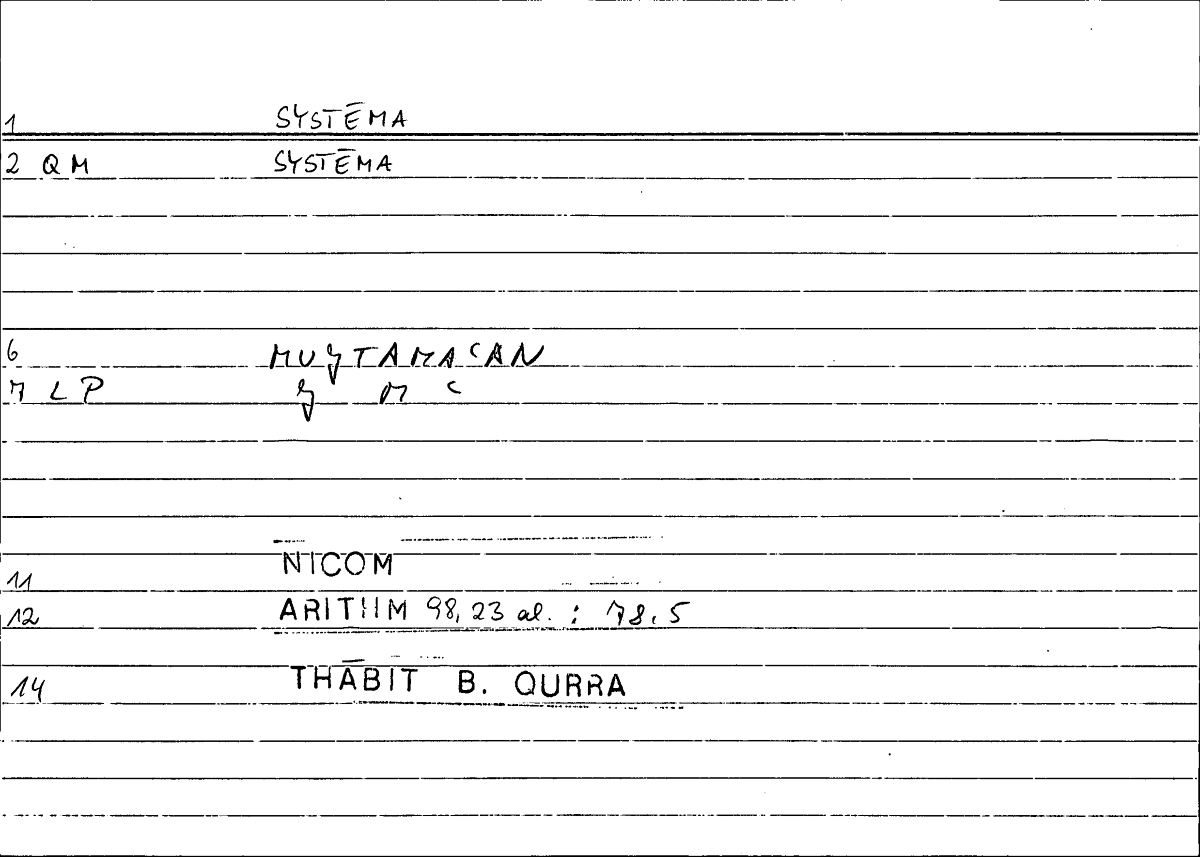 1 SYSTĒMA
2 QM SYSTĒMA
6 MUǧTAMAʿAN
7 LP ǧ M ʿ
11 NICOM
12 ARITHM 98,23 al. : 78,5
14 THĀBIT B. QURRA